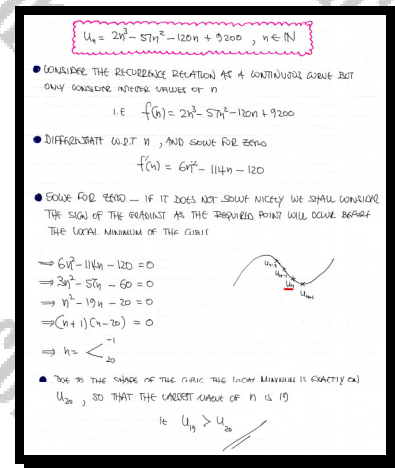 Uₙ = 2n³ - 57n² - 120n + 9200 , n ∈ ℕ
● CONSIDER THE RECURRENCE RELATION AS A CONTINUOUS CURVE BUT
ONLY CONSIDER INTEGER VALUES OF n
I.E f(n) = 2n³ - 57n² - 120n + 9200
● DIFFERENTIATE W.R.T n , AND SOLVE FOR ZERO
f'(n) = 6n² - 114n - 120
● SOLVE FOR ZERO — IF IT DOES NOT SOLVE NICELY WE SHALL CONSIDER
THE SIGN OF THE GRADIENT AS THE REQUIRED POINT WILL OCCUR BEFORE
THE LOCAL MINIMUM OF THE CUBIC
⇒ 6n² - 114n - 120 = 0
⇒ 3n² - 57n - 60 = 0
⇒ n² - 19n - 20 = 0
⇒ (n + 1)(n - 20) = 0
⇒ n = < -1
20
Uₙ₋₂
Uₙ₋₁
Uₙ
Uₙ₊₁
● DUE TO THE SHAPE OF THE CUBIC THE LOCAL MINIMUM IS EXACTLY ON
U₂₀ , SO THAT THE LARGEST VALUE OF n IS 19
IE U₁₉ > U₂₀